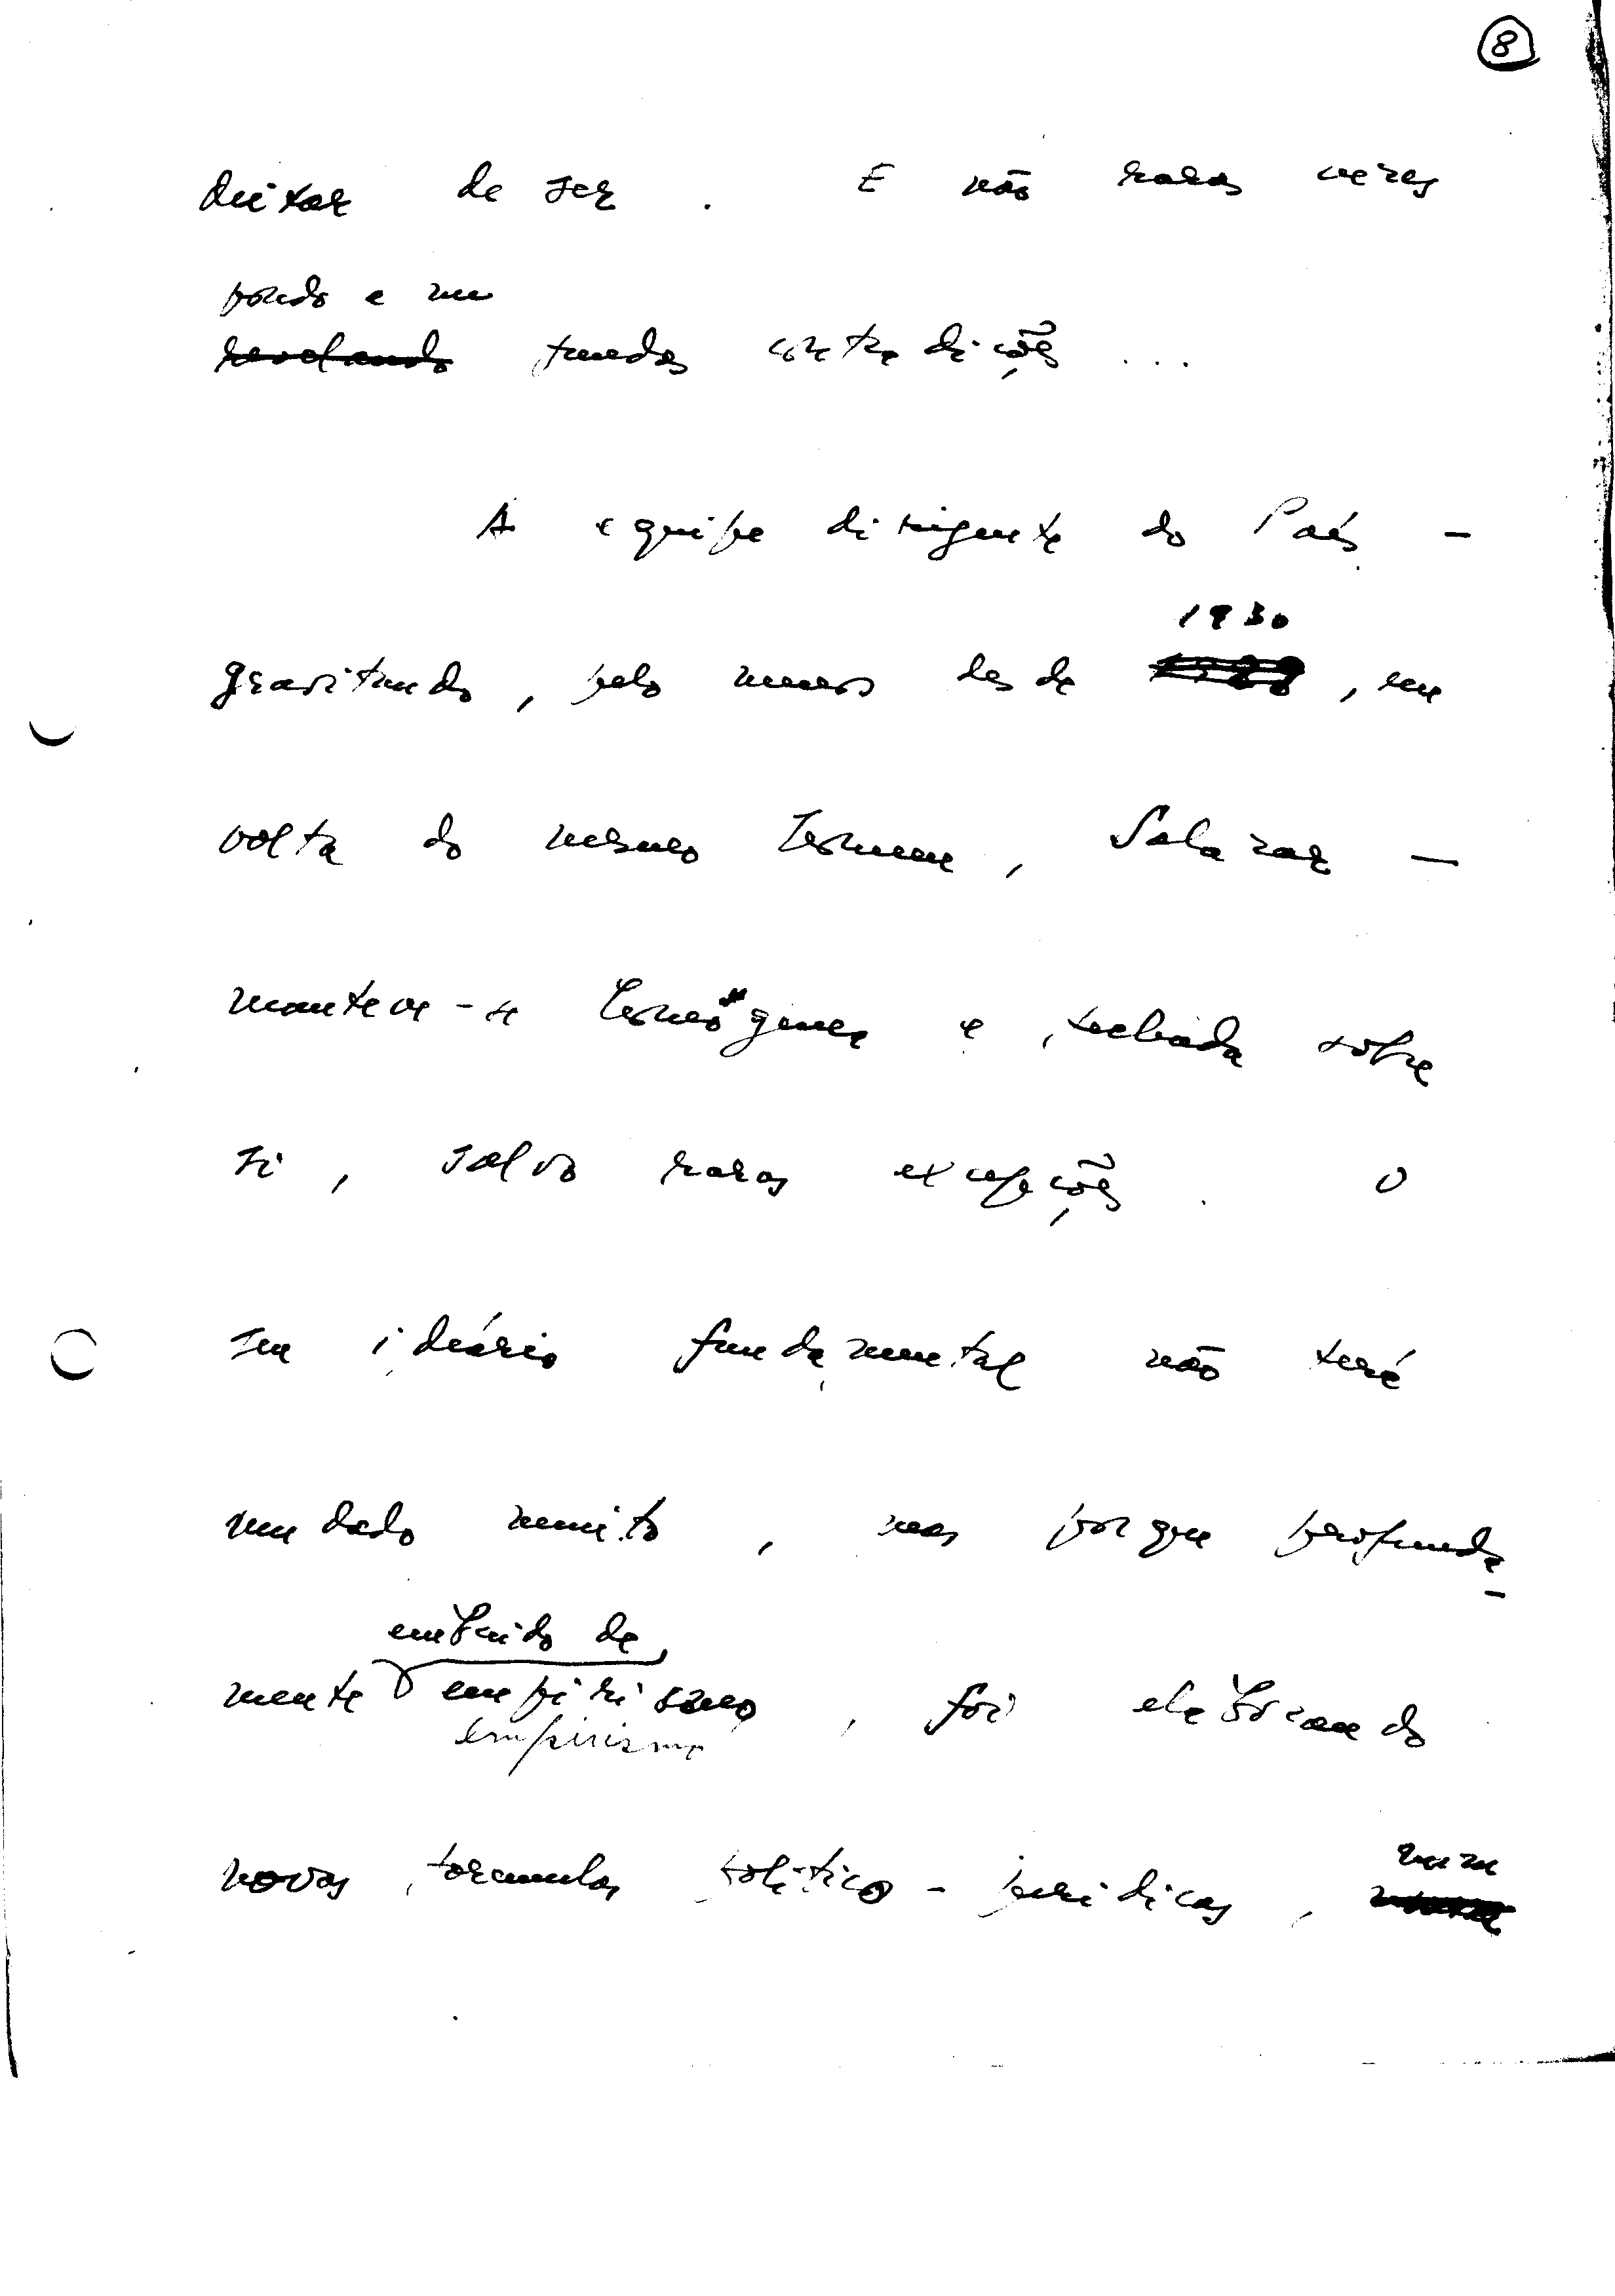 8
deixar de ser. E não raras vezes
pondo a nu
revelando fundas contradições ...
A equipe dirigente do País -
1930
gravitando, pelo menos desde, em
volta do mesmo homem, Salazar -
manteve-se homogénea e fechada sobre
si, salvo raras excepções. O
seu ideário fundamental não terá
mudado muito, mas porque profunda-
embuído de
mente empirismo, foi elaborando
empirismo
novas formulas político-jurídicas, num